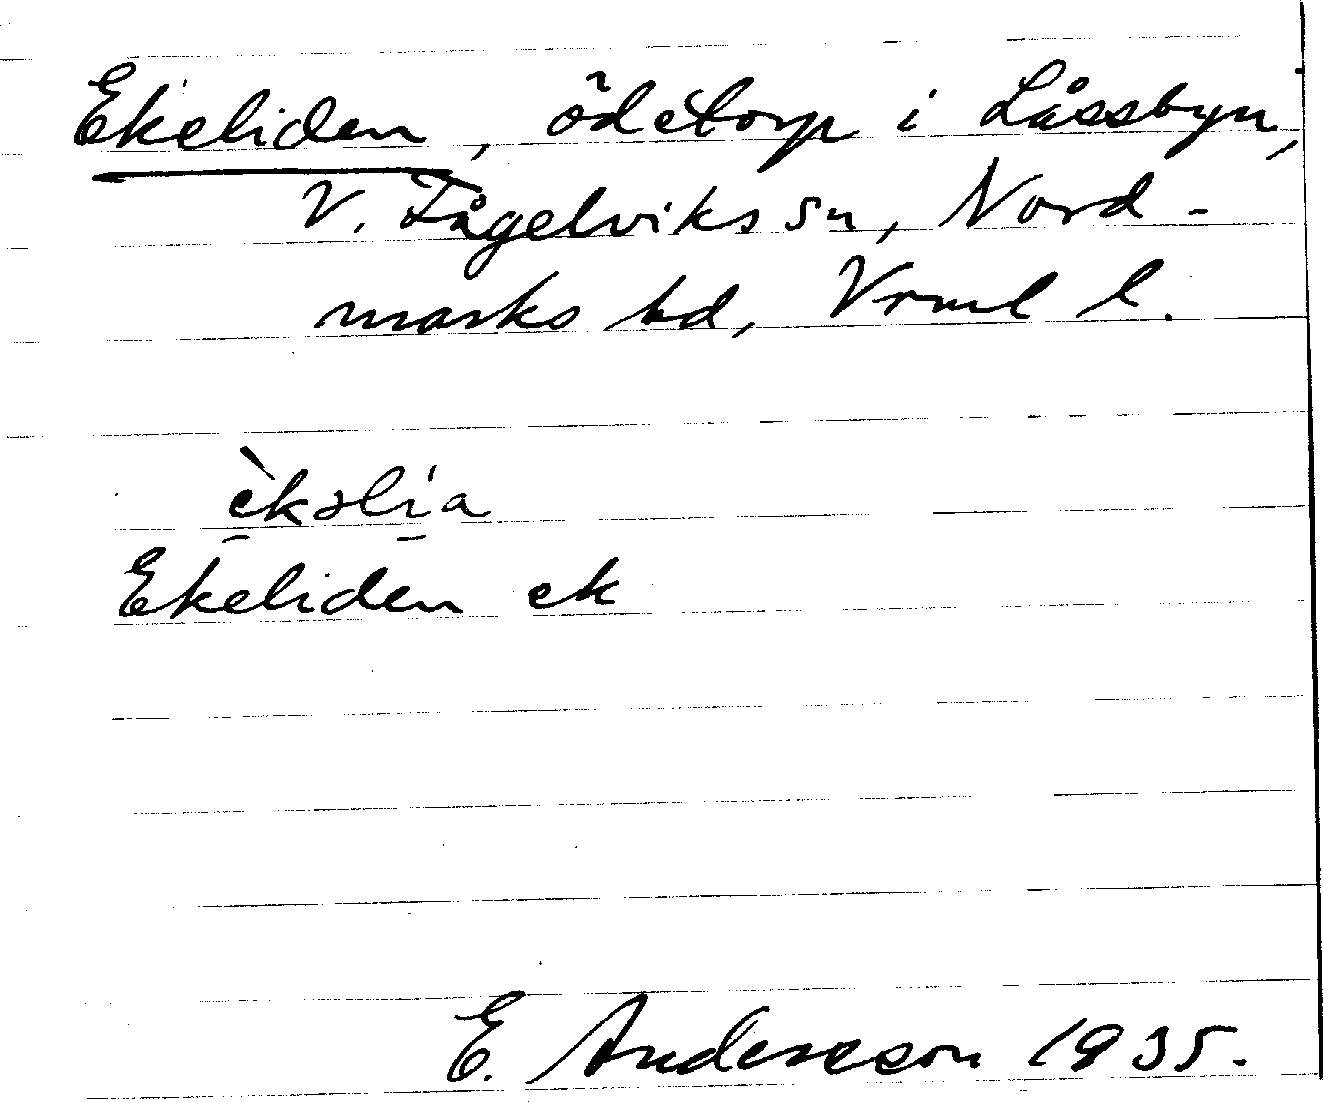 Ekeliden, ödetorp i Låssbyn,
V. Fågelviks sn, Nord-
marks hd, Vrml l.
èkəli̱a
Ekeliden ek
E. Andersson 1935.